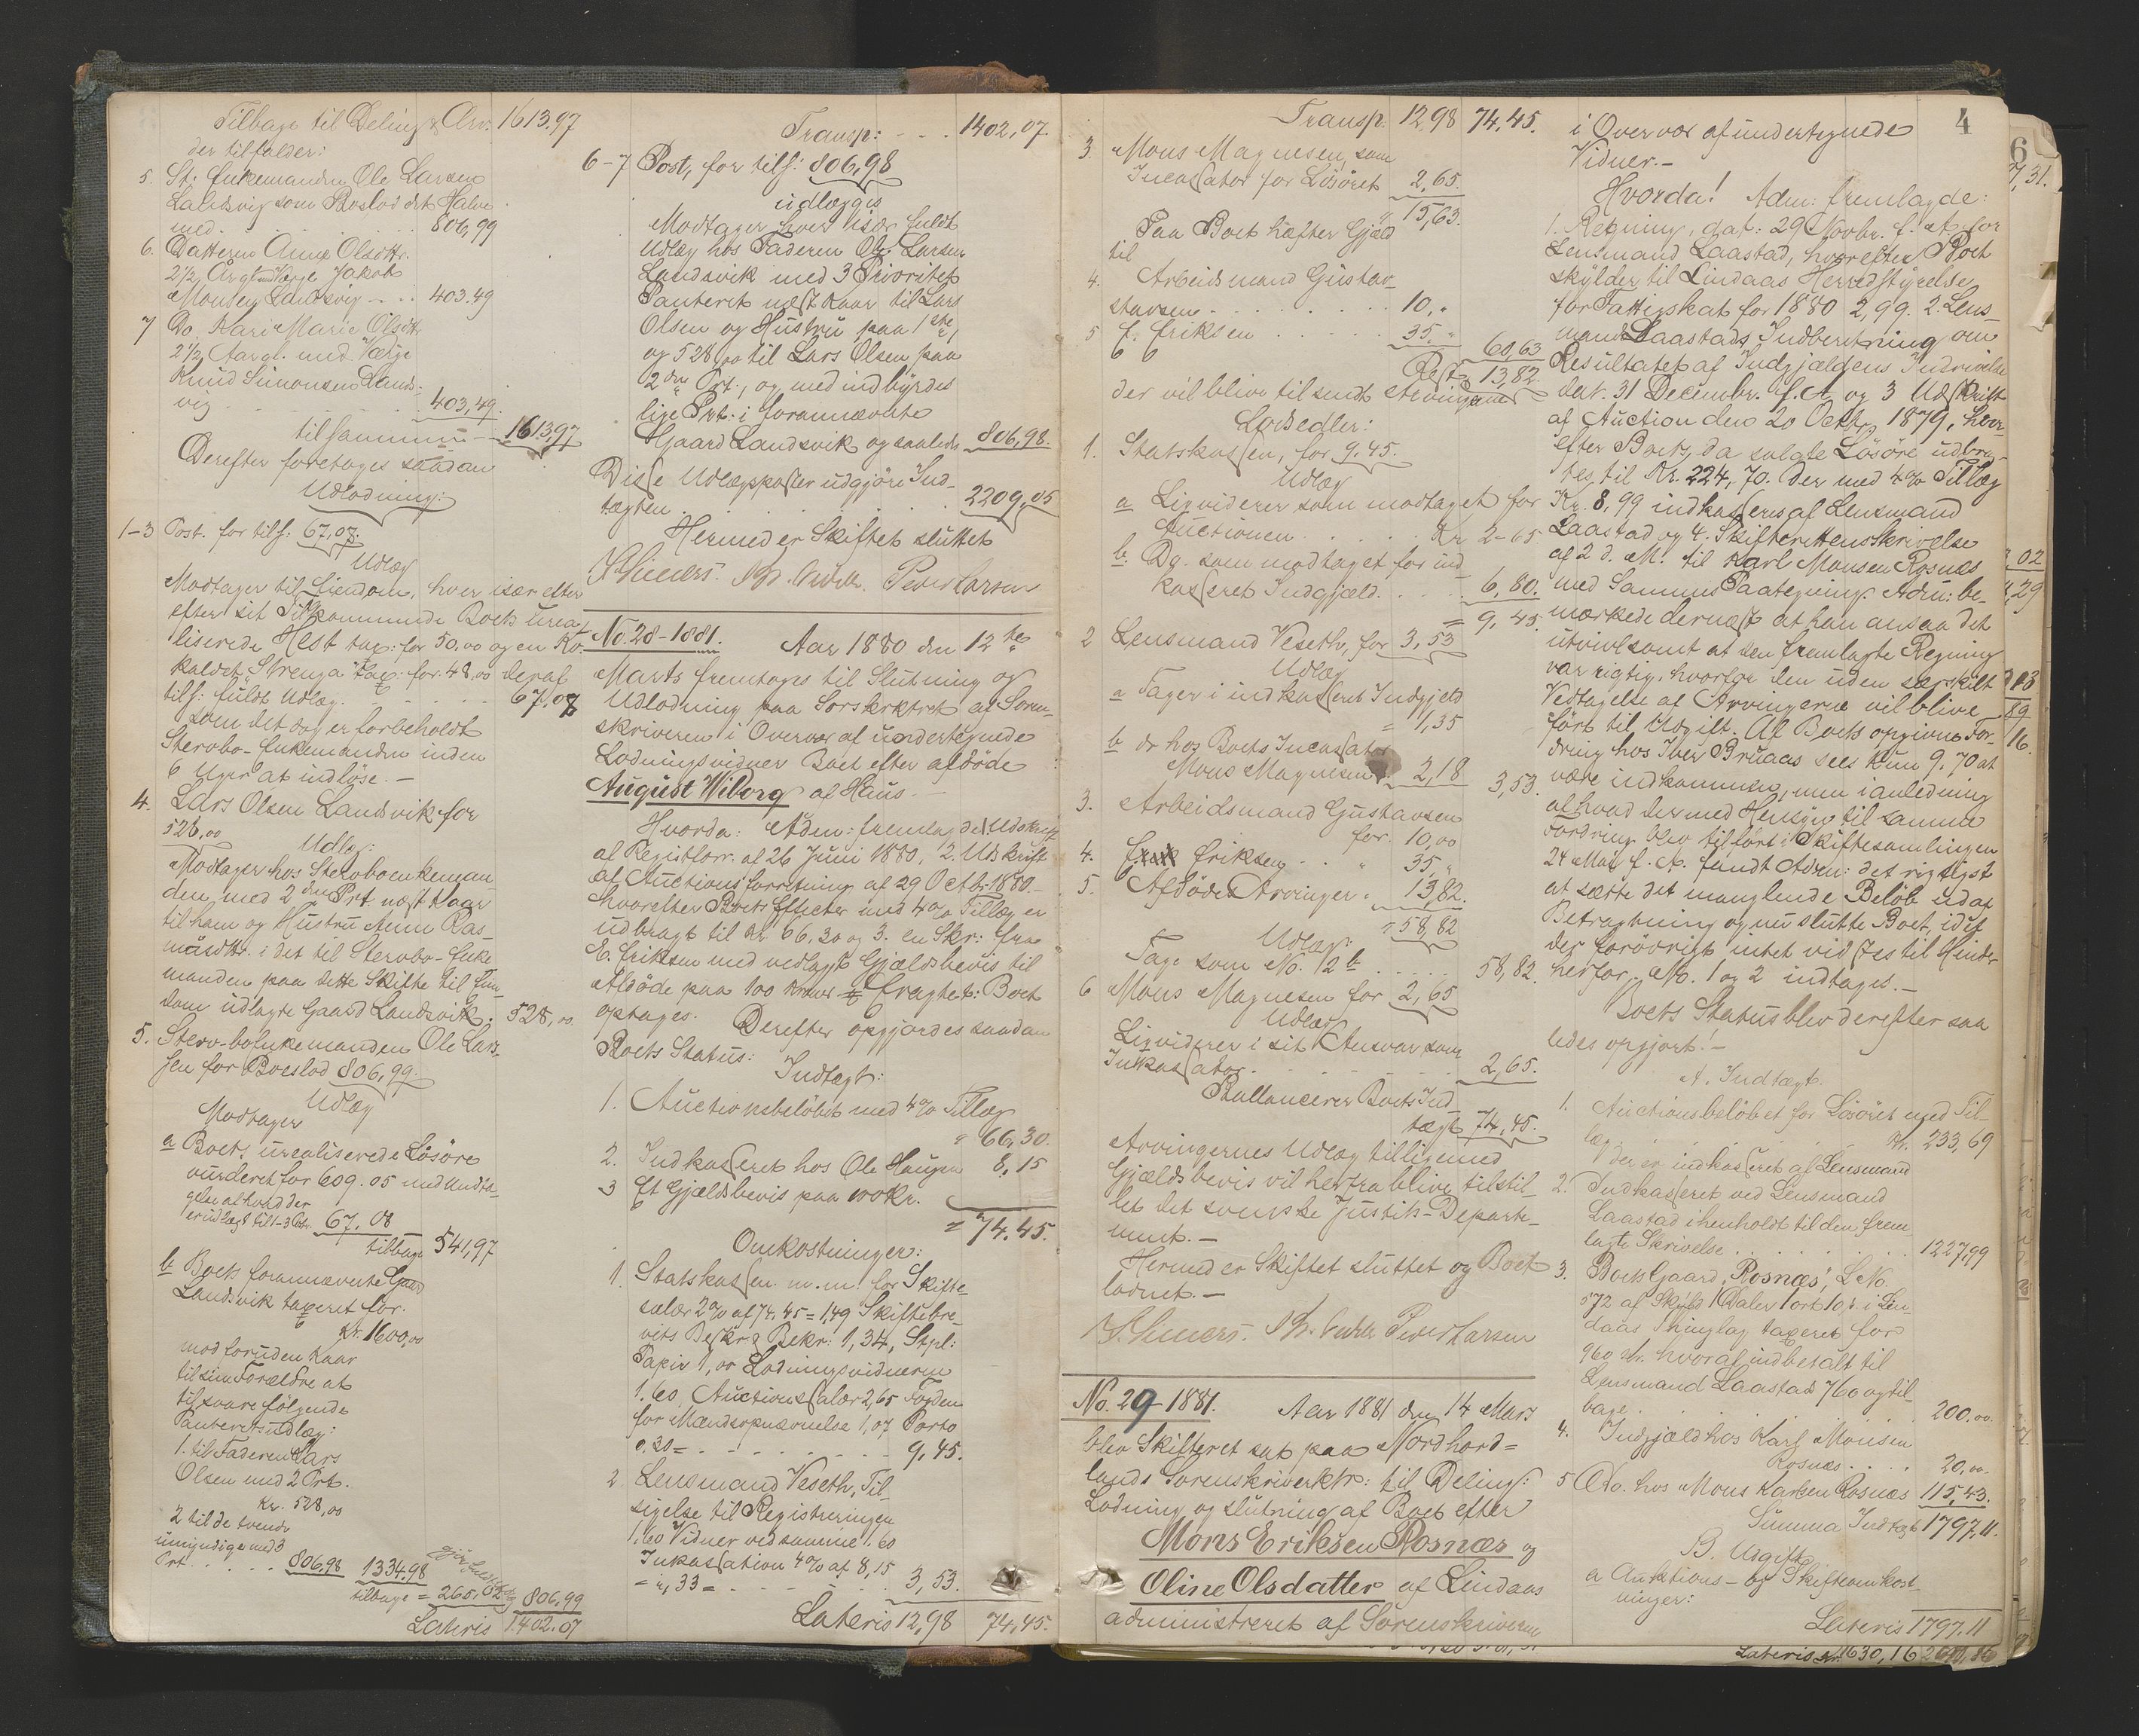 Tilbage til Deling & Arv. 1613.97
der tilfalder:
5. St. Enkemanden Ole Larsen
Landsvig som Boslod det Halve
med . . . 806,99
6. Datteren Anne Olsdtr.
2½ Aar gl. med Værge Jakob
Monsen Landsvig - . . 403.49
7 Do. Kari Marie Olsdtr.
2½ Aargl. med Værge
Knud Simonsen Lands-
vig . . . 403,49.
tilsammen - 1613,97
Derefter foretages saadan
Udlodning:
1-3 Post. for tils: 67,08.
Udlæg
Modtager til Eiendom, hver især efter
efter sit Tilkommende Boets urea-
liserede Hest tax: for 50,00 og en Ko
kaldet "Strenga" tax: for 48,00 deraf
tils: fuldt Udlæg . . . 67,08
som det dog er forbeholdt
Stervbo-Enkemanden inden
6 Uger at indløse. -
4. Lars Olsen Landsvik for
528,00
Udlæg:
Modtager hos Stervboenkeman-
den med 2den Prt. næst Kaar
til ham og Hustru Anne Ras-
musdtr. i det til Stervbo-Enke
manden paa dette Skifte til Eien-
dom udlagte Gaard Landsvik. 528,00
5. Sterv-boenkemanden Ole Lar-
sen for Boeslod 806,99.
Udlæg
Modtager
a Boets urealiserede Løsøre
vurderet for 609.05 med Undta-
gelse af hvad der
er udlagt til 1-3 Post. 67.08
tilbage 541,97
b Boets forannævnte Gaard
Landsvik taxeret for
Kr. 1600,00
mod foruden Kaar
til sine Forældre at
tilsvare følgende
Panteretsudlæg:
1. til Faderen Lars
Olsen med 2 Prt.
Kr. 528,00
2 til de tvende
umyndige med 3
Prt. . . 806,98 1334.98
tilbage = 265.02 806,99
Lateris 1402.07
Transp: - . . . 1402,07.
6-7 Post, for tils: 806,98
udlægges
Modtager hver især fuldt
Udlæg hos Faderen Ole Larsen
Landsvik med 3 Prioritets
Panteret næst Kaar til Lars
Olsen og Hustru paa 1ste,
og 528,00 til Lars Olsen paa
2den Prt., og med indbyrdes
lige Prt. i forannævnte
Gaard Landsvik og saaledes 806,98.
Disse Udlægsposter udgjøre Ind-
tægten . . . 2209,05
Hermed er Skiftet sluttet
Peder Larsen
No. 28-1881. Aar 1880 den 12te
Marts foretages til Slutning og
Udlodning paa Sorskrktret af Soren-
skriveren i Overvær af undertegnede
Lodningsvidner Boet efter afdøde
August Wiborg af Haus. -
Hvorda: Adm: fremlagde 1. Udskrift
af Registforr. af 26 Juni 1880, 2. Udskrift
af Auctionsforretning af 29 Octbr. 1880. -
hvorefter Boets Effecter med 4% Tillæg er
udbragt til Kr 66.30 og 3. en Skr: fra
E. Eriksen med vedlagt Gjældsbevis til
Afdøde paa 100 Kroner fragtet: Boet
optages. Derefter opgjordes saadan
Boets Status:
Indtægt:
1. Auctionsbeløbet med 4% Tillæg
" 66,30.
2. Indkasseret hos Ole Haugen 8,15
3 Et Gjældsbevis paa 100 Kr.
= 74.45.
Omkostninger:
1. Statskassen m.m. for Skifte-
salær 2% af 74,45 = 1,49 Skiftebre-
vets Beskr. & Bekr: 1,34, Stpl:
Papir 1,00 Lodningsvidnerne
1.60, Auctionssalær 2,65 Fogden
for Mændsopnævnelse 1,07 Porto
0.30 = - . . . 9,45.
2 Lensmand Veseth, Til-
sigelse til Registreringen
1.60 Vidner ved samme 1.60
Inkassation 4% af 8,15
= ",33 = - . . . 3,53.
Lateris 12,98 74,45.
Transp. 12,98 74,45.
3 Mons Magnesen, som
Incassator for Løsøret 2,65.
" 15,63.
Paa Boet hæfter Gjæld
til
4. Arbeidsmand Gustav-
stavsen . . . 10,"
5 E. Eriksen . . . 35. "
60,63
Rest 13,82.
der vil blive tilsendt Arvingerne
Lodsedler:
1. Statskassen, for 9.45.
Udlæg
a Liqviderer som modtaget for
Auctionen . . . Kr 2-65
b. Do. som modtaget for ind-
kasseret Indgjæld. . . . 6,80.
= 9,45.
2 Lensmand Veseth, for 3,53
Udlæg
a Tager i indkasseret Indgjeld
= 1,35
b do hos Boets Incassator
Mons Magnesen . 2,18 3,53.
3. Arbeidsmand Gustavsen
for. 10,00
4. Eriksen . . " 35,"
5. Afdødes Arvinger " 13,82.
= 58,82
Udlæg:
Tage som No. 12 b . . . 58,82.
6 Mons Magnesen for 2,65
Udlæg
Liqviderer i sit Ansvar som
Inkassator . . . 2,65.
Ballancerer Boets Ind-
tægt 74,45.
Arvingernes Udlæg tilligemed
Gjældsbevis vil herfra blive tilstil-
let det svenske Justits-Departe-
ment. -
Hermed er Skiftet sluttet og Boet
lodnet. -
Peder Larsen
No. 29-1881. Aar 1881 den 14 Mars
blev Skifteret sat paa Nordhord=
lands Sorenskriverktr: til Deling:
Lodning og slutning af Boet efter
Mons Eriksen Rosnæs og
Oline Olsdatter af Lindaas
administreret af Sorenskriveren
4
i Overvær af undertegnede
Vidner. -
Hvorda! Adm: fremlagde:
1. Regning, dat: 29 Novbr. f. A. for
Lensmand Laastad, hvorefter Boet
skylder til Lindaas Herredstyrelse
for Fattigskat for 1880 2,99. 2. Lens-
mand Laastads Indberetning om
Resultatet af Indgjældens Indrivelse
dat. 31 Decembr. f. A. og 3 Udskrift
af Auction den 20 Octbr 1879, hvor-
efter Boets, da solgte Løsøre udbrag-
tes til Kr. 224,70. Der med 4% Tillæg
Kr. 8,99 indkasseres af Lensmand
Laastad og 4. Skifterettens Skrivelse
af 2 d. M. til Karl Monsen Rosnæs
med Sammes Paategning. Adm: be-
mærkede dernæst at han ansaa det
utvivlsomt at den fremlagte Regning
var rigtig, hvorfor den uden særskilt
Vedtagelse af Arvingerne vil blive
ført til Udgift. Af Boets opgivne For-
dring hos Iver Bruaas sees kun 9.70 at
være indkommen, men i anledning
af hvad der med Hensyn til samme
Fordring blev tilført i Skiftesamlingen
24 Mai f. A. fandt Adm: det rigtigst
at sætte det manglende Beløb ud af
Betragtning og nu slutte Boet, idet
der forøvrigt intet vidstes til Hinder
herfor. No. 1 og 2 indtages. -
Boets Status blev derefter saa
ledes opgjort! -
A. Indtægt.
1. Auctionsbeløbet for Løsøret med Til-
læg . . . Kr. 233,69
der er indkasseret af Lensmand
2. Indkasseret ved Lensmand
Laastad i henhold til den frem-
lagte Skrivelse . . . 1227,99
3. Boets Gaard "Rosnæs", L No.
172 af Skyld 1 Daler 1 ort 10 s. i Lin-
daas Thinglag taxeret for
960 Kr. hvoraf indbetalt til
Lensmand Laastad 760 og til-
bage . . . 200.00
4. Indgjæld hos Karl Monsen
Rosnæs . . . 20,00
5 Do. hos Mons Karlsen Rosnæs 115,43.
Summa Indtægt 1797,11.
B. Udgift
a Auktions- og Skifteomkost-
ninger:
Lateris 1797.11
Lateris Kr. 1630,16
6
7,31.
02
4,29
89
16.